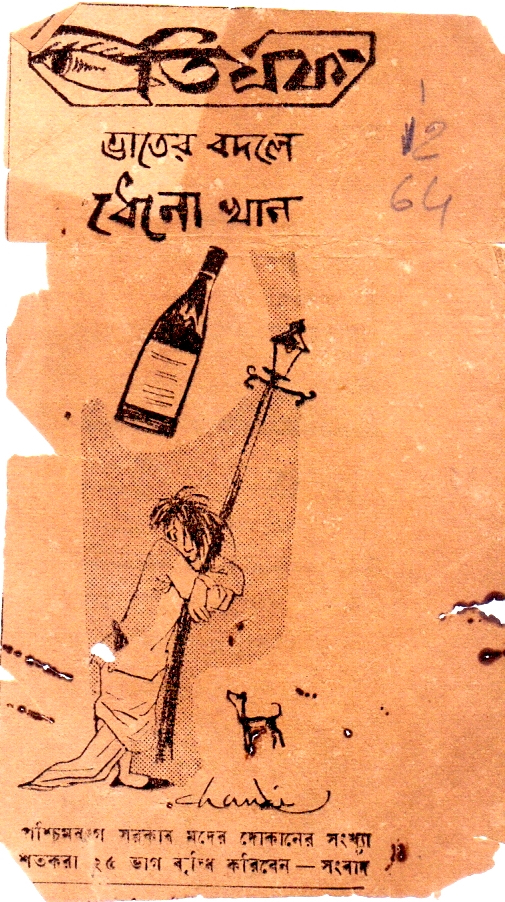 তির্যক
ভাতের বদলে
ধেনো খান
1
12
64
Chandi
পশ্চিমবঙ্গ সরকার মদের দোকানের সংখ্যা
শতকরা ২৫ ভাগ বৃদ্ধি করিবেন — সংবাদ